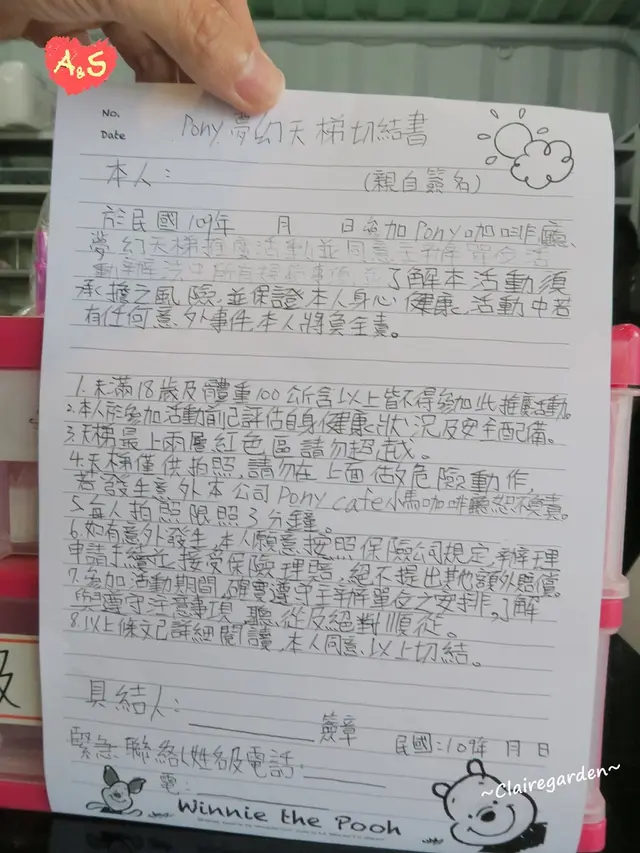 A&S
No.
Date
Pony 夢幻天梯切結書
本人：
(親自簽名)
於民國109年 月 日參加Pony咖啡廳、
夢幻天梯推廣活動並同意主辦單位活
了解本活動須
承擔之風險,並保證本人身心健康,活動中若
有任何意外事件,本人將負全責。
1.未滿18歲及體重100公斤含以上皆不得參加此推廣活動。
2.本人於參加活動前已評估自身健康狀況及安全配備。
3.天梯最上兩層紅色區請勿超越。
4.天梯僅供拍照,請勿在上面做危險動作,
若發生意外本公司Pony cafe小馬咖啡廳恕不負責。
5.每人拍照限照3分鐘。
6.如有意外發生,本人願意按照保險公司規定,辦理
申請手續並接受保險理賠,絕不提出其他額外賠償。
7.參加活動期間,確實遵守主辦單位之安排,了解
與遵守注意事項,聽從及絕對順從。
8.以上條文已詳細閱讀,本人同意以上切結。
具結人：
簽章
民國：109年 月 日
緊急聯絡人姓名及電話：
電：
Winnie the Pooh
~Clairegarden~